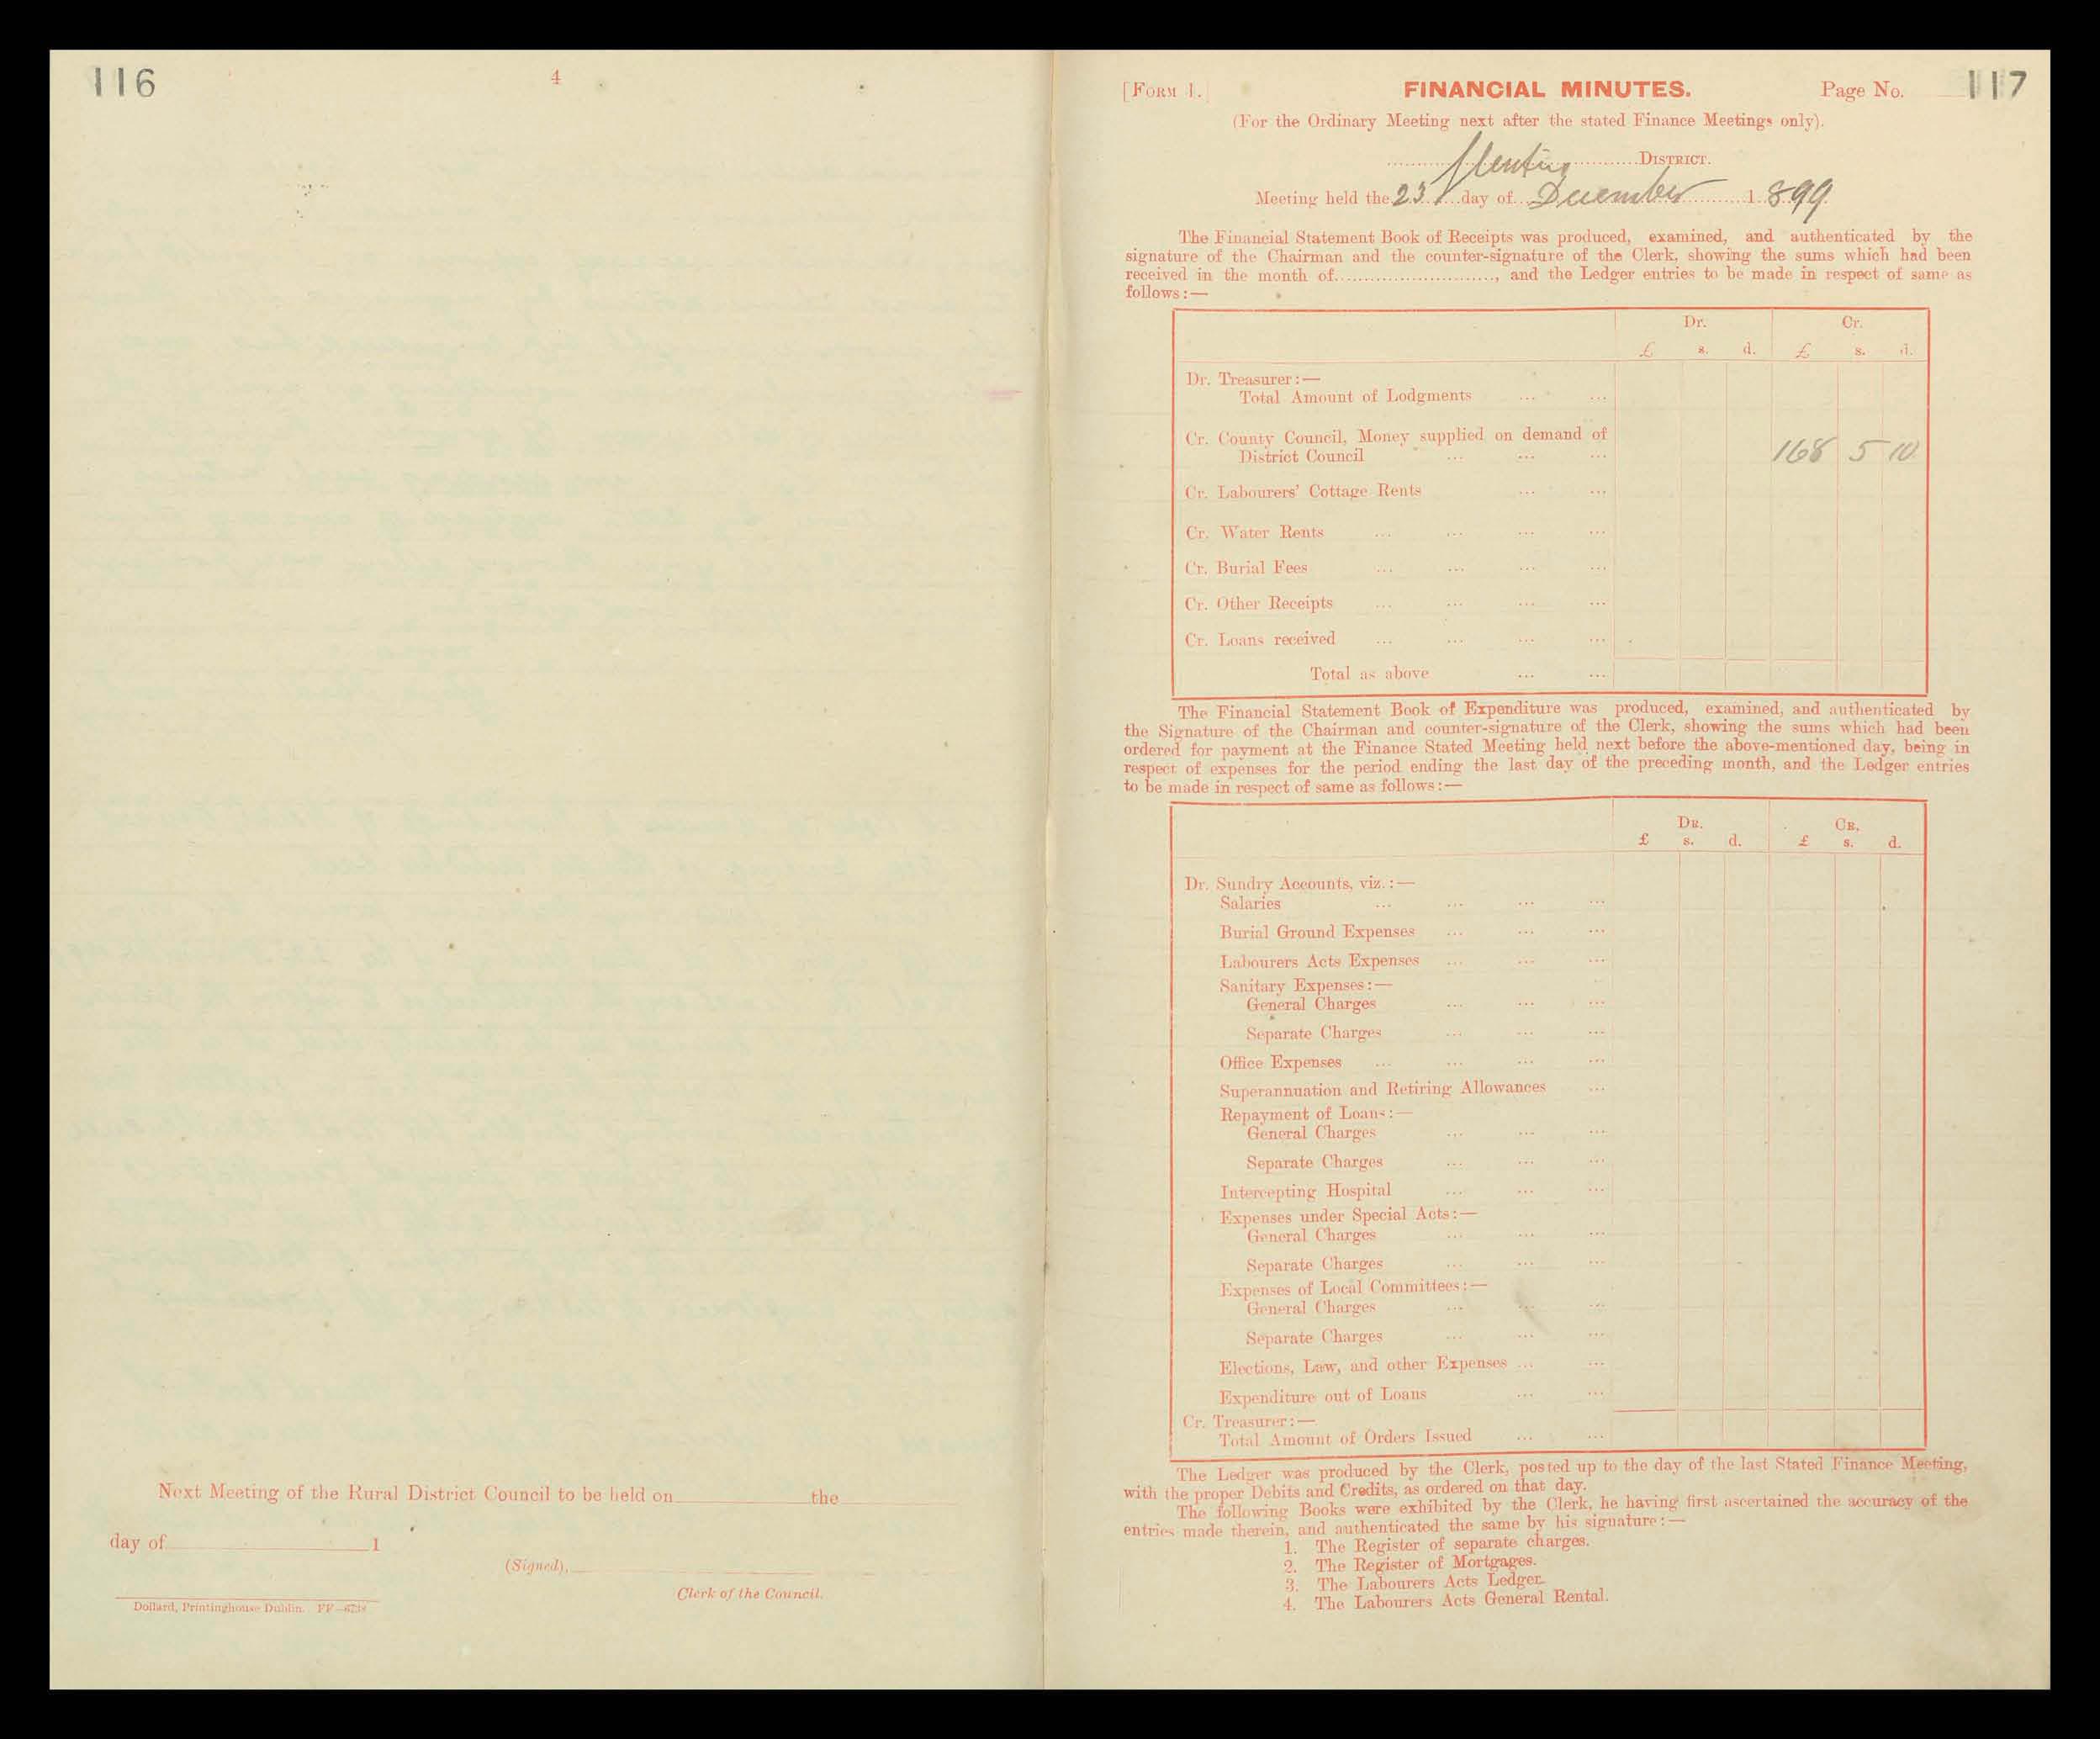 116
4
Next Meeting of the Rural District Council to be held on the
day of 1
(Signed),
Clerk of the Council.
Dollard, Printinghouse Dublin.
[FORM 1.]
FINANCIAL MINUTES.
Page No. 117
(For the Ordinary Meeting next after the stated Finance Meetings only).
Glenties DISTRICT.
Meeting held the 23 day of December 1899
The Financial Statement Book of Receipts was produced, examined, and authenticated by the
signature of the Chairman and the counter-signature of the Clerk, showing the sums which had been
received in the month of , and the Ledger entries to be made in respect of same as
follows:—
Dr. Cr.
£ s. d. £ s. d.
Dr. Treasurer:—
Total Amount of Lodgments ... ...
Cr. County Council, Money supplied on demand of
District Council ... ... ... 168 5 10
Cr. Labourers' Cottage Rents ... ...
Cr. Water Rents ... ... ... ...
Cr. Burial Fees ... ... ... ...
Cr. Other Receipts ... ... ... ...
Cr. Loans received ... ... ... ...
Total as above ... ...
The Financial Statement Book of Expenditure was produced, examined, and authenticated by
the Signature of the Chairman and counter-signature of the Clerk, showing the sums which had been
ordered for payment at the Finance Stated Meeting held next before the above-mentioned day, being in
respect of expenses for the period ending the last day of the preceding month, and the Ledger entries
to be made in respect of same as follows:—
DR. CR.
£ s. d. £ s. d.
Dr. Sundry Accounts, viz.:—
Salaries ... ... ... ...
Burial Ground Expenses ... ... ...
Labourers Acts Expenses ... ... ...
Sanitary Expenses:—
General Charges ... ... ...
Separate Charges ... ... ...
Office Expenses ... ... ... ...
Superannuation and Retiring Allowances ...
Repayment of Loans:—
General Charges ... ... ...
Separate Charges ... ... ...
Intercepting Hospital ... ... ...
Expenses under Special Acts:—
General Charges ... ... ...
Separate Charges ... ... ...
Expenses of Local Committees:—
General Charges ... ... ...
Separate Charges ... ... ...
Elections, Law, and other Expenses ... ...
Expenditure out of Loans ... ...
Cr. Treasurer:—
Total Amount of Orders Issued ... ...
The Ledger was produced by the Clerk, posted up to the day of the last Stated Finance Meeting,
with the proper Debits and Credits, as ordered on that day.
The following Books were exhibited by the Clerk, he having first ascertained the accuracy of the
entries made therein, and authenticated the same by his signature:—
1. The Register of separate charges.
2. The Register of Mortgages.
3. The Labourers Acts Ledger.
4. The Labourers Acts General Rental.